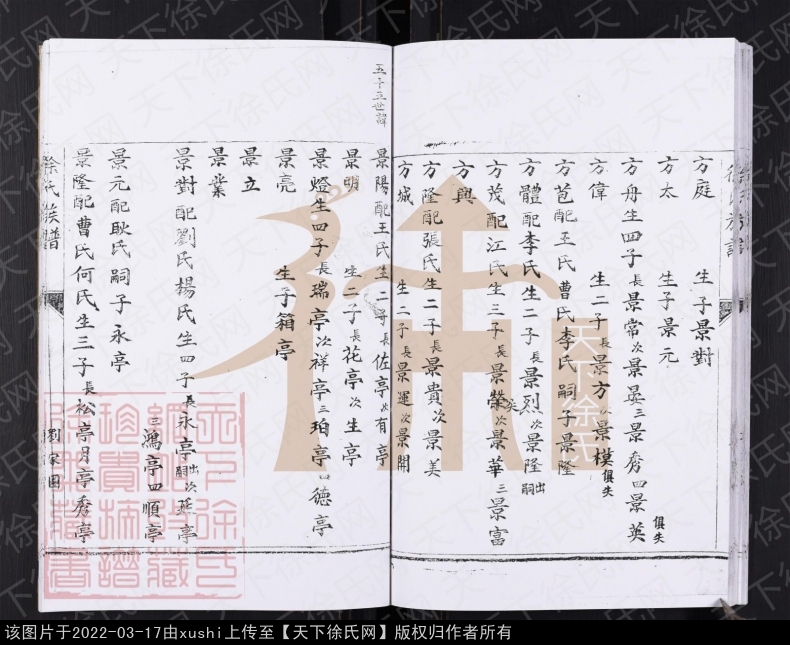 方庭 生子景對
方太 生子景元
方舟生四子長景常次景晏三景秀四景英俱失
方偉 生二子長景方次景模俱失
方苞配王氏曹氏李氏嗣子景隆
方體配李氏生二子長景烈次景隆出嗣
方茂配江氏生三子長景榮失次景華三景富
方興
方隆配張氏生二子長景貴次景美
方城 生二子長景運次景開
徐氏族譜
五十三世諱
景陽配王氏生二子長佐亭次有亭
景明 生二子長花亭次生亭
景燈生四子長瑞亭次祥亭三珀亭四德亭
景亮 生子箱亭
景立
景業
景對配劉氏楊氏生四子長永亭出嗣次燕亭
三鴻亭四順亭
景元配耿氏嗣子永亭
景隆配曹氏何氏生三子長松亭月亭秀亭
徐氏族譜
劉家園
天下徐氏
该图片于2022-03-17由xushi上传至【天下徐氏网】版权归作者所有